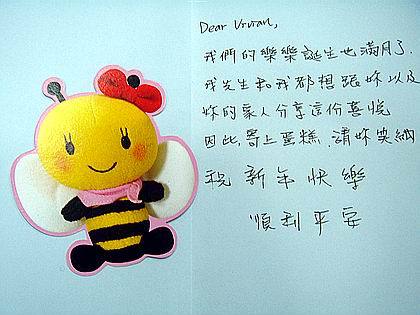 Dear Vivian,
我們的樂樂誕生也滿月了.
我先生和我都想跟妳以及
妳的家人分享這份喜悅
因此,寄上蛋糕.請妳笑納
祝 新年快樂
順利平安